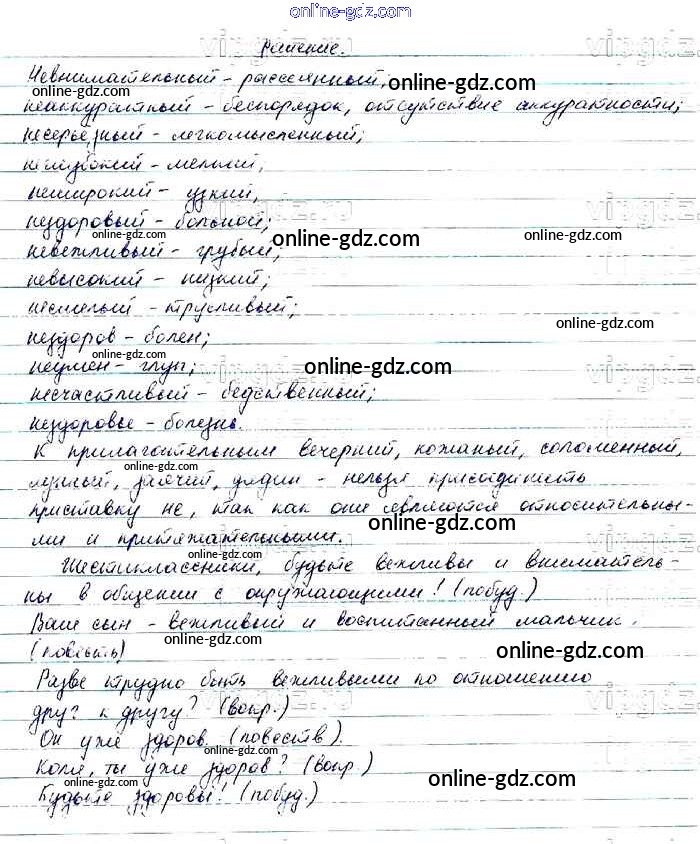 online-gdz.com
Решение.
Невнимательный – рассеянный; online-gdz.com
неаккуратный – беспорядок, отсутствие аккуратности;
несерьёзный – легкомысленный;
неглубокий – мелкий;
неширокий – узкий,
нездоровый – больной;
online-gdz.com online-gdz.com online-gdz.com
невежливый – грубый;
невысокий – низкий;
несмелый – трусливый;
нездоров – болен; online-gdz.com
online-gdz.com
неумен – глуп; online-gdz.com
несчастливый – бедственный;
нездоровье – болезнь.
online-gdz.com
К прилагательным вечерний, кожаный, соломенный,
online-gdz.com
заячий, дядин – нельзя присоединить
приставку не, так как они являются относительны-
ми и притяжательными. online-gdz.com
online-gdz.com
Шестиклассники, будьте вежливы и вниматель-
ны в общении с окружающими! (побуд.)
Ваш сын – вежливый и воспитанный мальчик.
online-gdz.com
(повеств) online-gdz.com
Разве трудно быть вежливыми по отношению
друг к другу? (вопр.)
Он уже здоров. (повеств).
online-gdz.com
Коля, ты уже здоров? (вопр.)
online-gdz.com
Будьте здоровы! (побуд.)